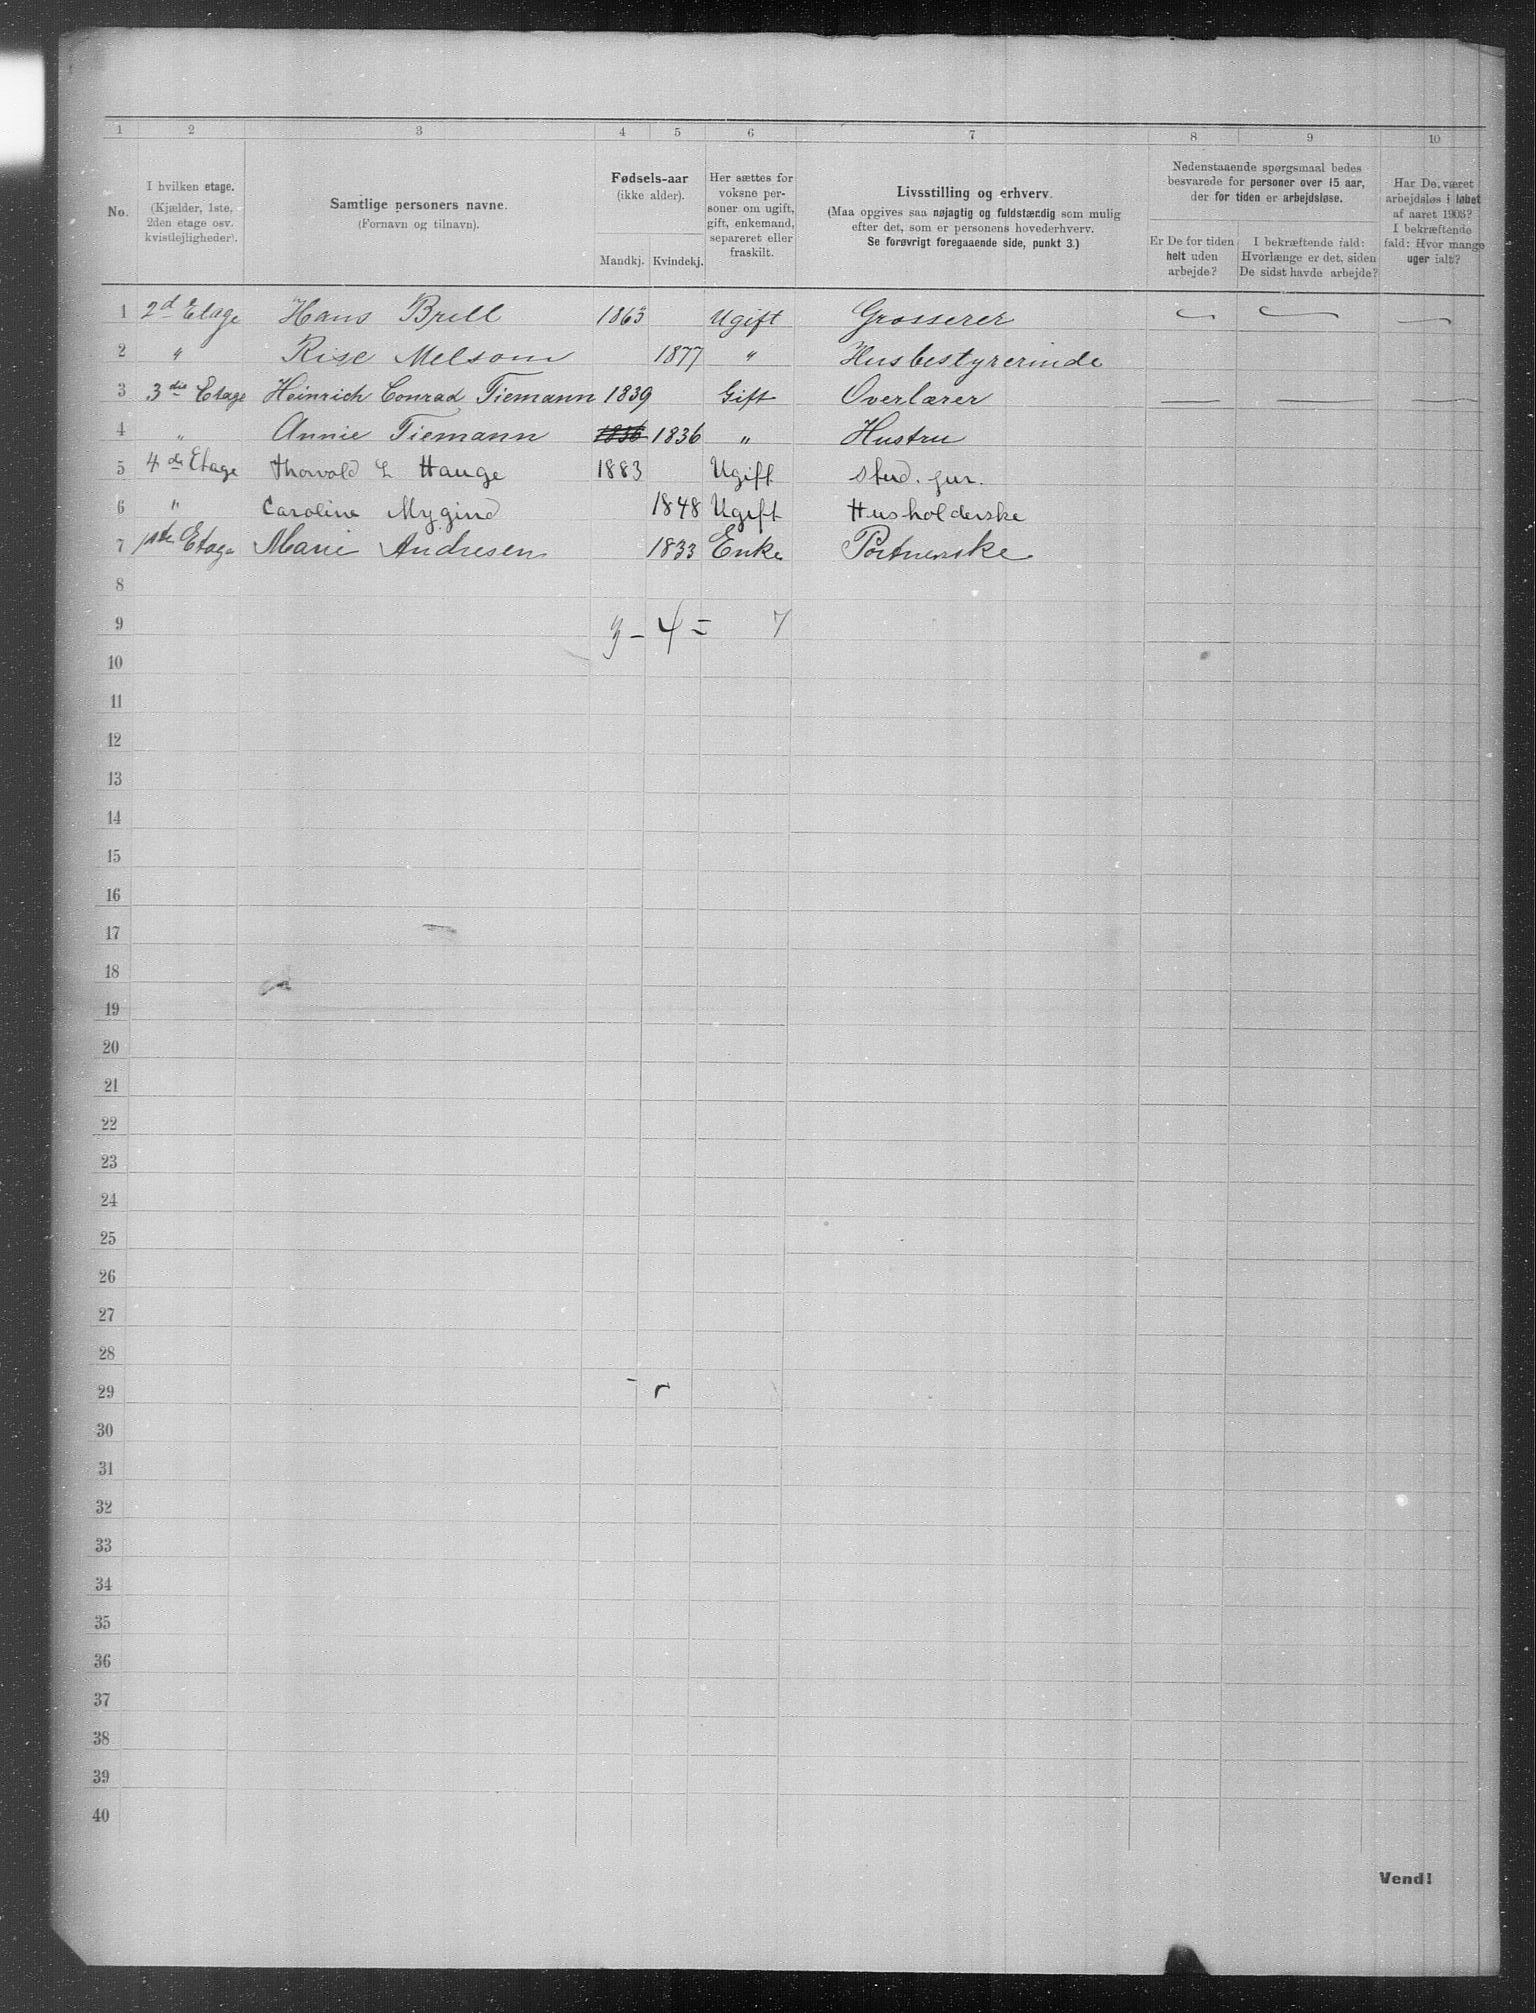 1 2 3 4 5 6 7 8 9 10
No.
I hvilken etage.
(Kjælder, 1ste,
2den etage osv.
kvistlejligheder).
Samtlige personers navne.
(Fornavn og tilnavn).
Fødsels-aar
(ikke alder).
Mandkj. Kvindekj.
Her sættes for
voksne per-
soner om ugift,
gift, enkemand,
separeret eller
fraskilt.
Livsstilling og erhverv.
(Maa opgives saa nøjagtig og fuldstændig som mulig
efter det, som er personens hovederhverv.
Se forøvrigt foregaaende side, punkt 3.)
Nedenstaaende spørgsmaal bedes
besvarede for personer over 15 aar,
der for tiden er arbejdsløse.
Er De for tiden
helt uden
arbejde?
I bekræftende fald:
Hvorlænge er det, siden
De sidst havde arbejde?
Har De været
arbejdsløs i løbet
af aaret 1903?
I bekræftende
fald: Hvor mange
uger ialt?
1 2d Etage Hans Brill 1863 Ugift Grosserer — — —
2 " Rise Melsom 1877 " Husbestyrerinde
3 3die Etage Heinrich Conrad Tiemann 1839 Gift Overlærer — — —
4 " Annie Tiemann 1836 1836 " Hustru
5 4de Etage Thorvald L Hauge 1883 Ugift stud. jur.
6 " Caroline Mygind 1848 Ugift Husholderske
7 1ste Etage Marie Andresen 1833 Enke Portnerske
8
9 3 – 4 = 7
10
11
12
13
14
15
16
17
18
19
20
21
22
23
24
25
26
27
28
29
30
31
32
33
34
35
36
37
38
39
40
Vend!